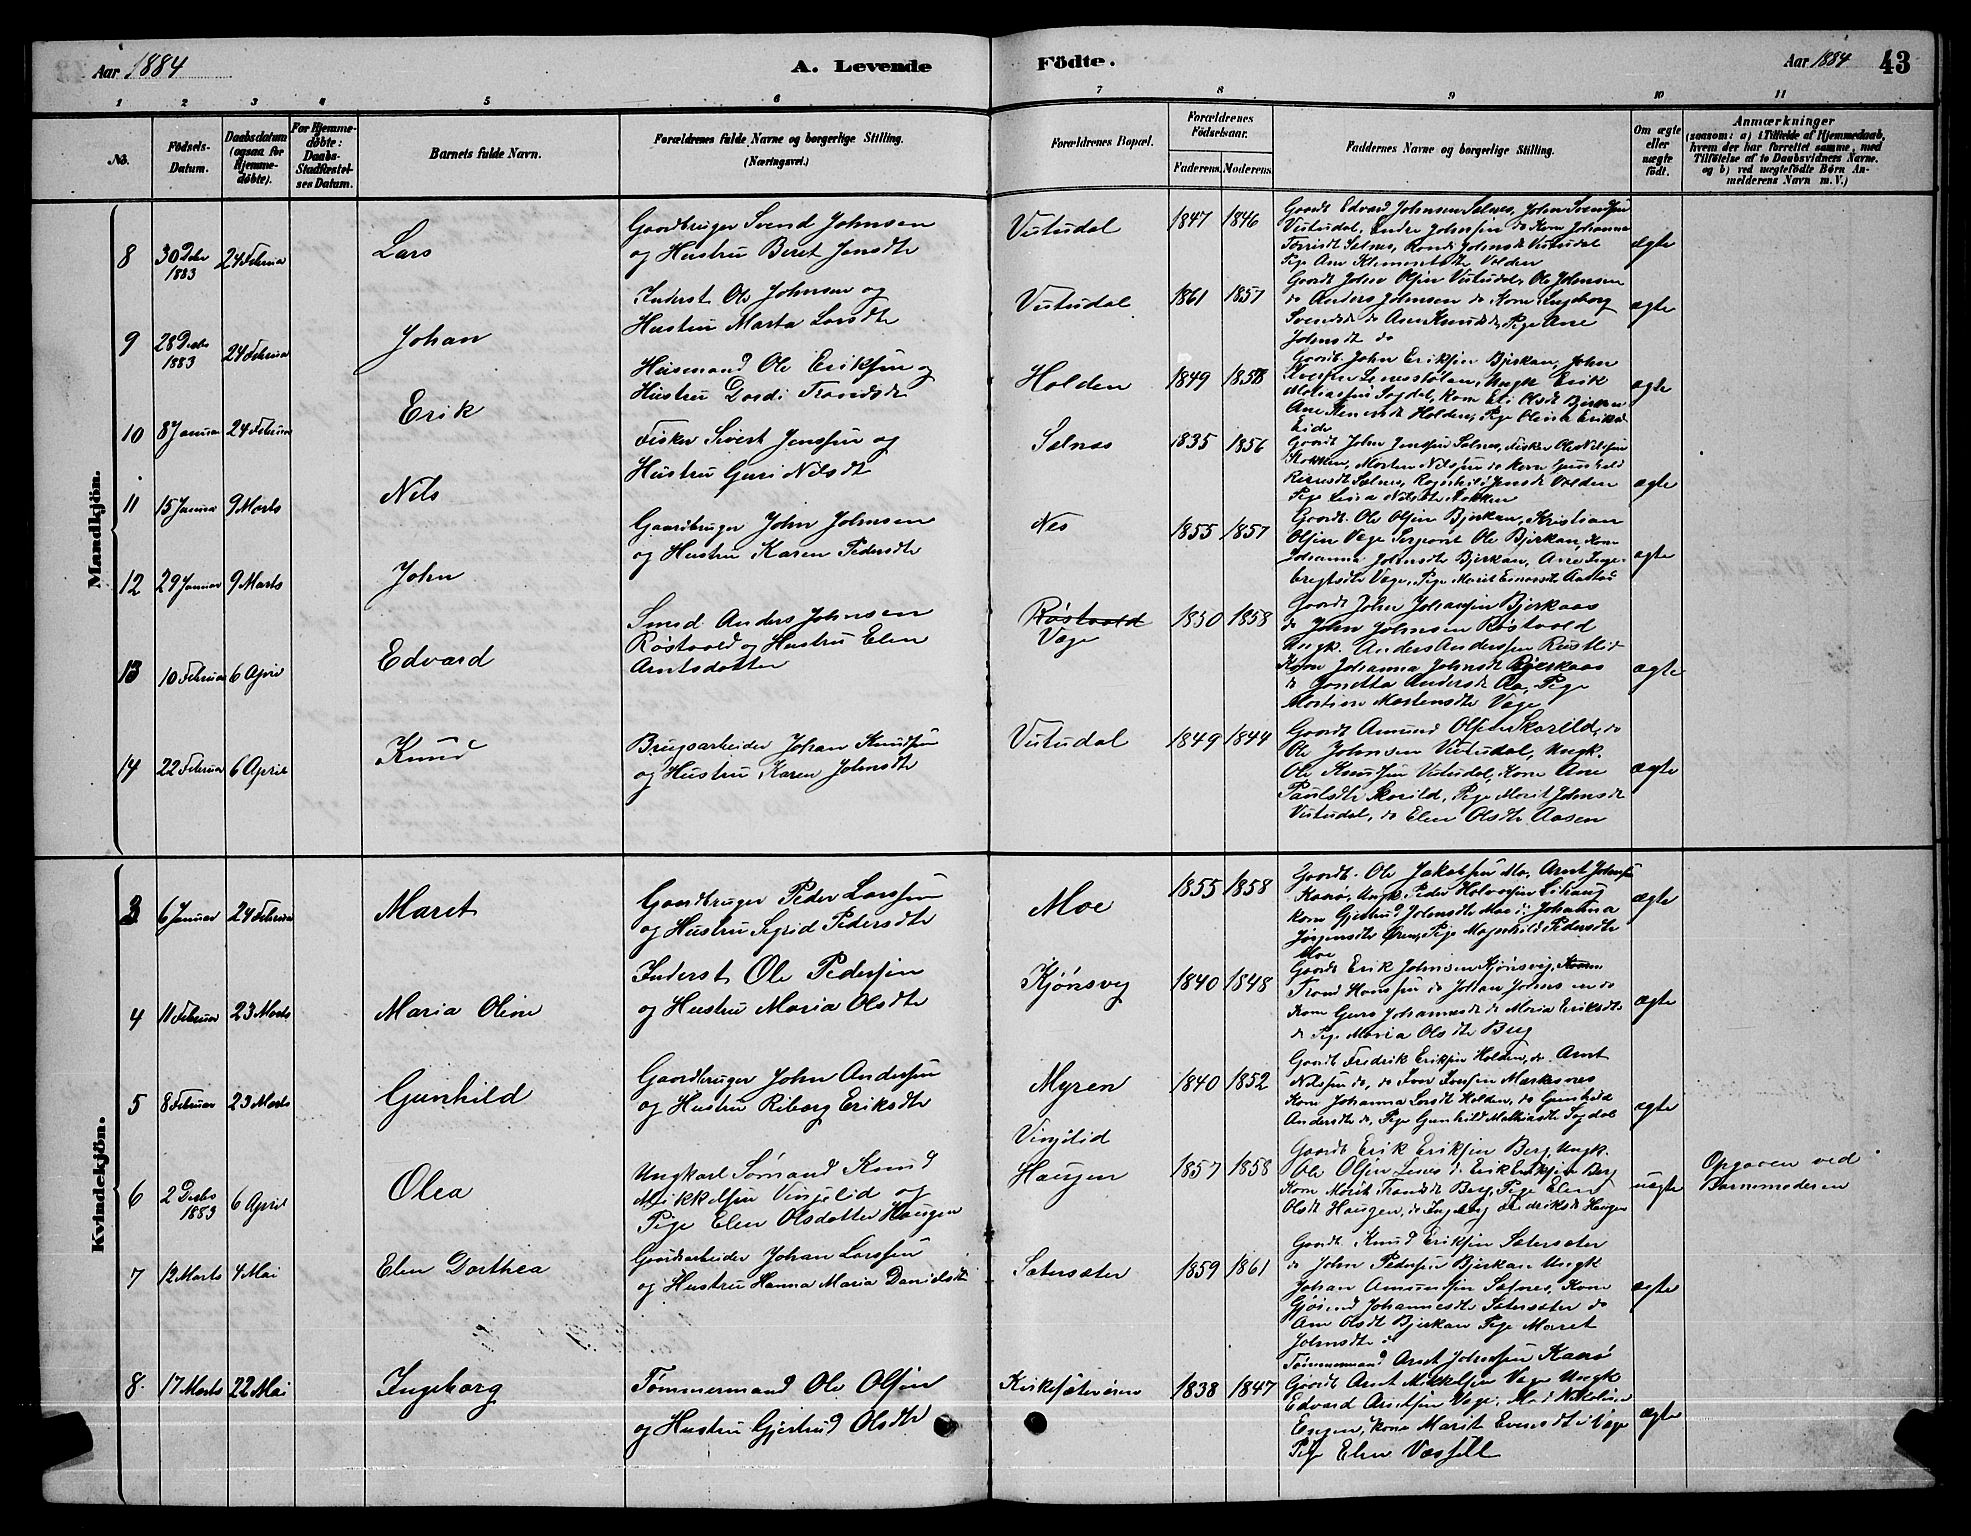 Aar 1884
A. Levende
Födte.
Aar 1884
43
1 2 3 4 5 6 7 8 9 10 11
No.
Födsels-
Datum.
Daabsdatum
(ogsaa for
Hjemme-
døbte).
For Hjemme-
døbte:
Daabs-
Stadfæstel-
ses Datum.
Barnets fulde Navn.
Forældrenes fulde Navne og borgerlige Stilling.
(Næringsvei.)
Forældrenes Bopæl.
Forældrenes
Födselsaar.
Faderens. Moderens.
Faddernes Navne og borgerlige Stilling.
Om ægte
eller
uægte
født.
Anmærkninger
(saasom: a) i Tilfælde af Hjemmedaab,
hvem der har forrettet samme, med
Tilföielse af to Daabsvidners Navne.
og b) ved uægtefödte Börn An-
melderens Navn m. V.)
Mandkjön.
8 30 Debr 1883 24 Februar Lars
Gaardbruger Svend Johnsen
og Hustru Beret Jonsdtr
Vutudal 1847 1846
Gaardb. Edvard Johnsen Selnes, John Svendsen
Vutudal, Endre Johnsen do Kone Johanna
Selnes, Johnsdt Vutudal
Pige Ane Klemetsdtr Volden
ægte
9 28 Decbr 1883 24 Februar Johan
Inderst Ole Johnsen og
Hustru Marta Larsdtr
Vutudal 1861 1857
Gaardb. John Olsen Vutudal, Ole Johnsen
do Anders Johnsen do Kone Ingeborg
Svendsdt do Ane Knudsdt, Pige Ane
Johnsdt do
ægte
10 8 Januar 24 Februar Erik
Husmand Ole Eriksen og
Hustru Dordi Trondsdtr
Holden 1849 1858
Gaardb. John Eriksen Bjerkan, John
Ungk Erik
Mathiassen Sogdal, Kone Eli Olsdt Bjerkan
Ane Holden, Pige Olina Eriksd
Eide
ægte
11 15 Januar 9 Marts Nils
Fisker Sivert Jenssen og
Hustru Guri Nilsdt
Selnes 1835 1856
Gaardb John Jenssen Selnes, Fisker Ole Nilssen
Stokken, Morten Nilssen do Kone Gunhild
Selnes, Ragnhild Jensdt Volden
Pige Lina Nilsdtr Stokken
ægte
12 29 Januar 9 Marts John
Gaardbruger John Johnsen
og Hustru Karen Pedersdtr
Nes 1855 1857
Gaardb. Ole Olsen Bjerkan, Kristian
Olsen Vage Sergeant Ole Bjerkan, Kone
Johanna Johnsdt Bjerkan, Ane Inge-
brigtsdtr Vage, Pige Marit Einarsdt Aastad
ægte
13 10 Februar 6 April Edvard
Smed Anders Johnsen
Røstvold og Hustru Elen
Arntsdatter
Røstvold
Vage 1850 1858
Gaardb John Johansen Bjerkaas
do John Johnsen Røstvold
Ungk. Anders Anderssen Rustlid
Kone Johanna Johnsdt Bjerkaas
do Jonetta Andersdt Aa, Pige
Martine Mortensdtr Vage
ægte
14 22 Februar 6 April Knud
Brugsarbeider Johan Knudsen
og Hustru Karen Johnsdtr
Vutudal 1849 1844
Gaardb Amund Olsen Skarild, do
Ole Johnsen Vutudal, Ungk.
Ole Knudsen Vutudal, Kone Ane
Paulsdtr Skarild, Pige Marit Johnsdt
Vutudal, do Elen Olsdtr Aasen
ægte
Kvindekjön.
3 6 Januar 24 Februar Maret
Gaardbruger Peder Larssen
og Hustru Sigrid Pedersdtr
Moe 1855 1858
Gaardb. Ole Jakobsen Mo, Arnt Johnsen
Kaarø, Ungk. Peder Halvorsen Lihaug
Kone Gjertrud Johnsdtr Moe, Johanna
Jørgensdtr Øren, Pige Magnhild Pedersdtr
Moe
ægte
4 11 Februar 23 Marts Maria Oline
Inderst Ole Pedersen
og Hustru Maria Olsdtr
Kjönsvig 1840 1848
Gaardb Erik Johnsen Kjönsvig,
Trond Hanssen do Johan Johnsen do
Kone Guro Johannesdt do Maria Eriksdt
do Pige Maria Olsdtr Berg
ægte
5 8 Februar 23 Marts Gunhild
Gaardbruger John Andersen
og Hustru Riborg Eriksdtr
Myren 1840 1852
Gaardb Fredrik Eriksen Holden, do Arnt
Nilssen do, do Iver Iversen Mærkesnes
Kone Johanna Larsdt Holden, do Gunhild
Andersdt do, Pige Gunhild Mathiasdt Sogdal
ægte
6 2 Decbr 1883 6 April Olea
Ungkarl Sømand Knud
Mikkelsen Vingelid og
Pige Elen Olsdatter Haugen
Vingelid
Haugen 1857 1858
Gaardb Erik Eriksen Berg Ungk.
Ole Olsen Lenes do Erik Eriksen Berg
Kone Marit Trondsdt Berg, Pige Elen
Olsdt Haugen, do Ingeborg Fredriksdt Haugen
uægte
Opgaven ved
Barnemoderen
7 12 Marts 4 Mai Elen Dorthea
Gaardsarbeider Johan Larssen
og Hustru Hanna Maria Danielsdtr
Sætersæter 1859 1861
Gaardb Knud Eriksen Sætersæter
do John Pedersen Bjerkan Ungk
Johan Amundsen Selnes, Kone
Gjörend Johannesdtr Sætersæter do
Ane Olsdt Bjerkan Pige Maret
Johnsdtr
ægte
8. 17 Marts 22 Mai Ingeborg
Tömmermand Ole Olsen
og Hustru Gjertrud Olsdtr
Kirksæterören 1838 1847
Tömmermand Arnt Johnssen Kaarø
Gaardb Arnt Mikkelsen Vage Ungk
Edvard Arntsen Vage, Nikolai
Engen, Kone Marit Evensdtr Vage
Pige Elen Vasslett
ægte